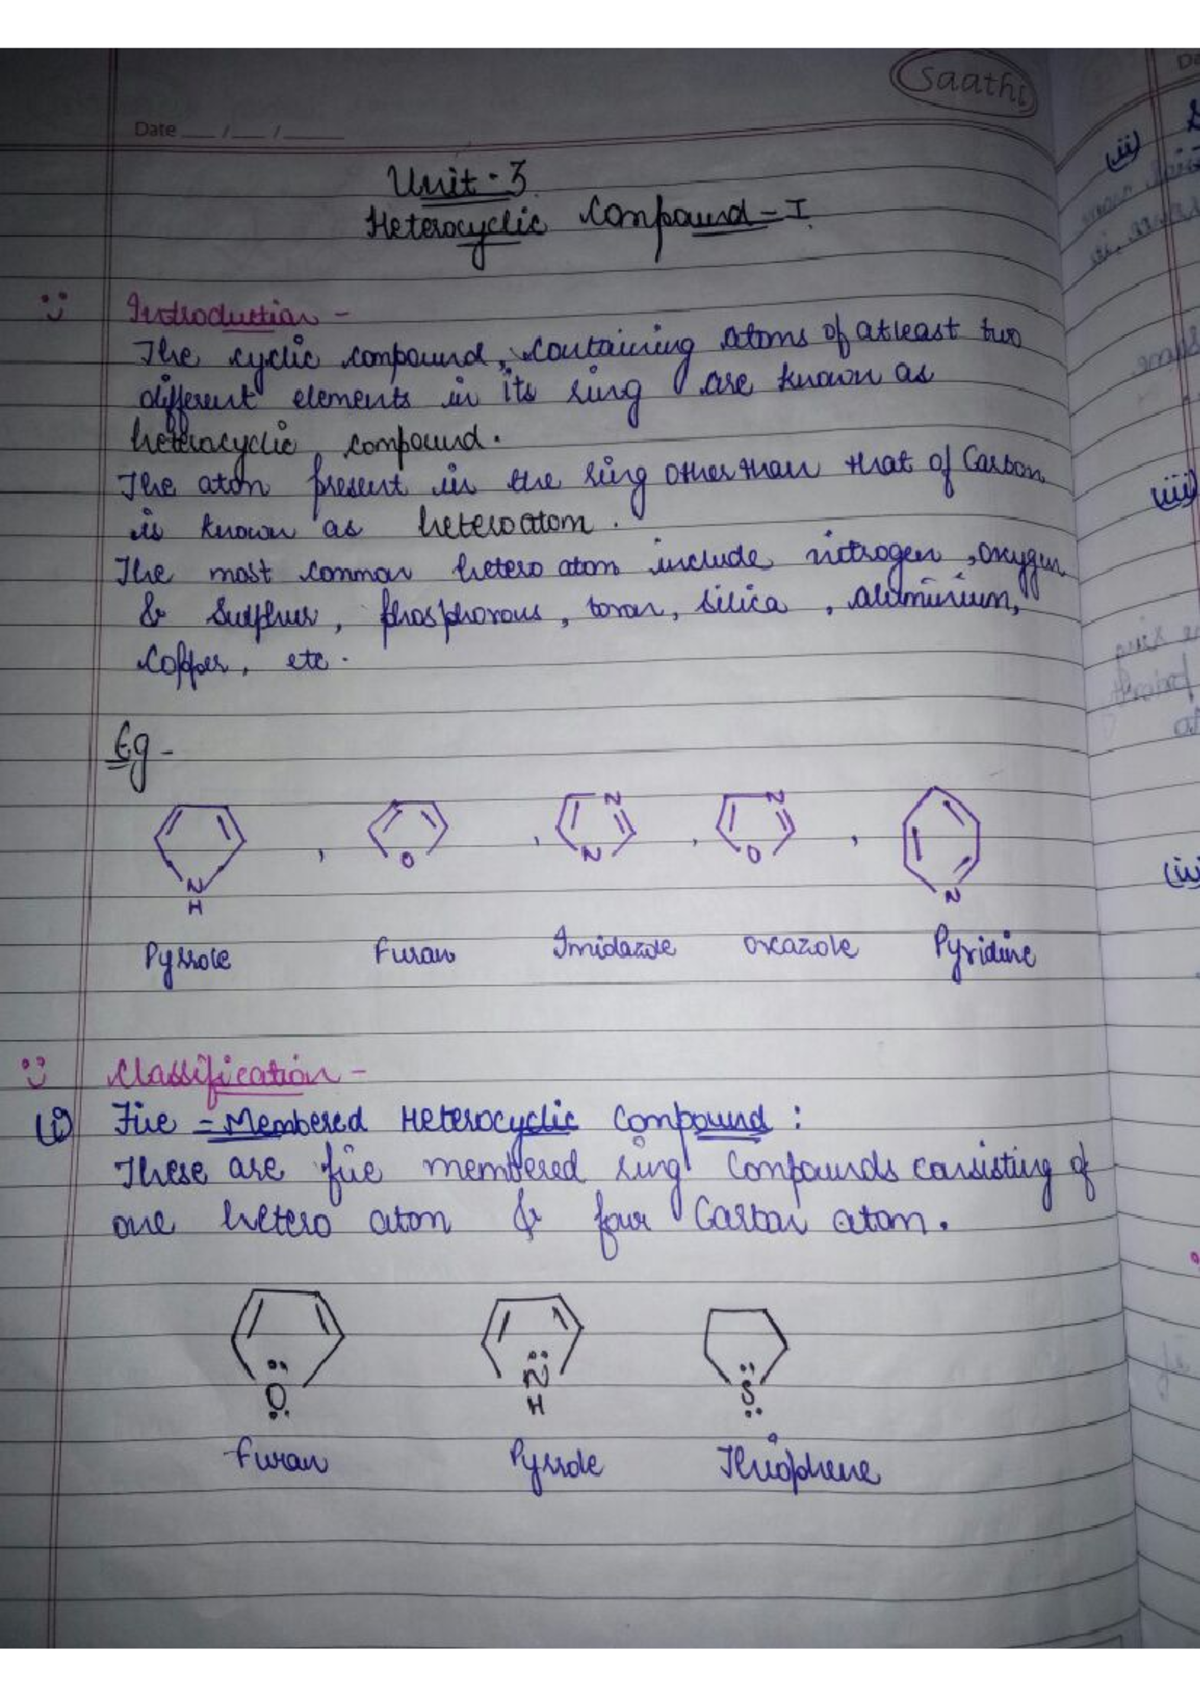 Saathi
Date ___ / ___ / _____
Unit - 3
Heterocyclic Compound - I
Introduction -
The cyclic compound, containing atoms of atleast two
different elements in its ring are known as
heterocyclic compound.
The atom present in the ring other than that of Carbon
is known as heteroatom.
The most common hetero atom include nitrogen, oxygen
& Sulphur, phosphorous, boron, silica, aluminium,
Copper, etc.
Eg -
N N O
O N O N
H
Pyrrole Furan Imidazole Oxazole Pyridine
Classification -
(i) Five - Membered Heterocyclic Compound :
These are five membered ring compounds consisting of
one hetero atom & four Carbon atom.
O N S
H
Furan Pyrrole Thiophene